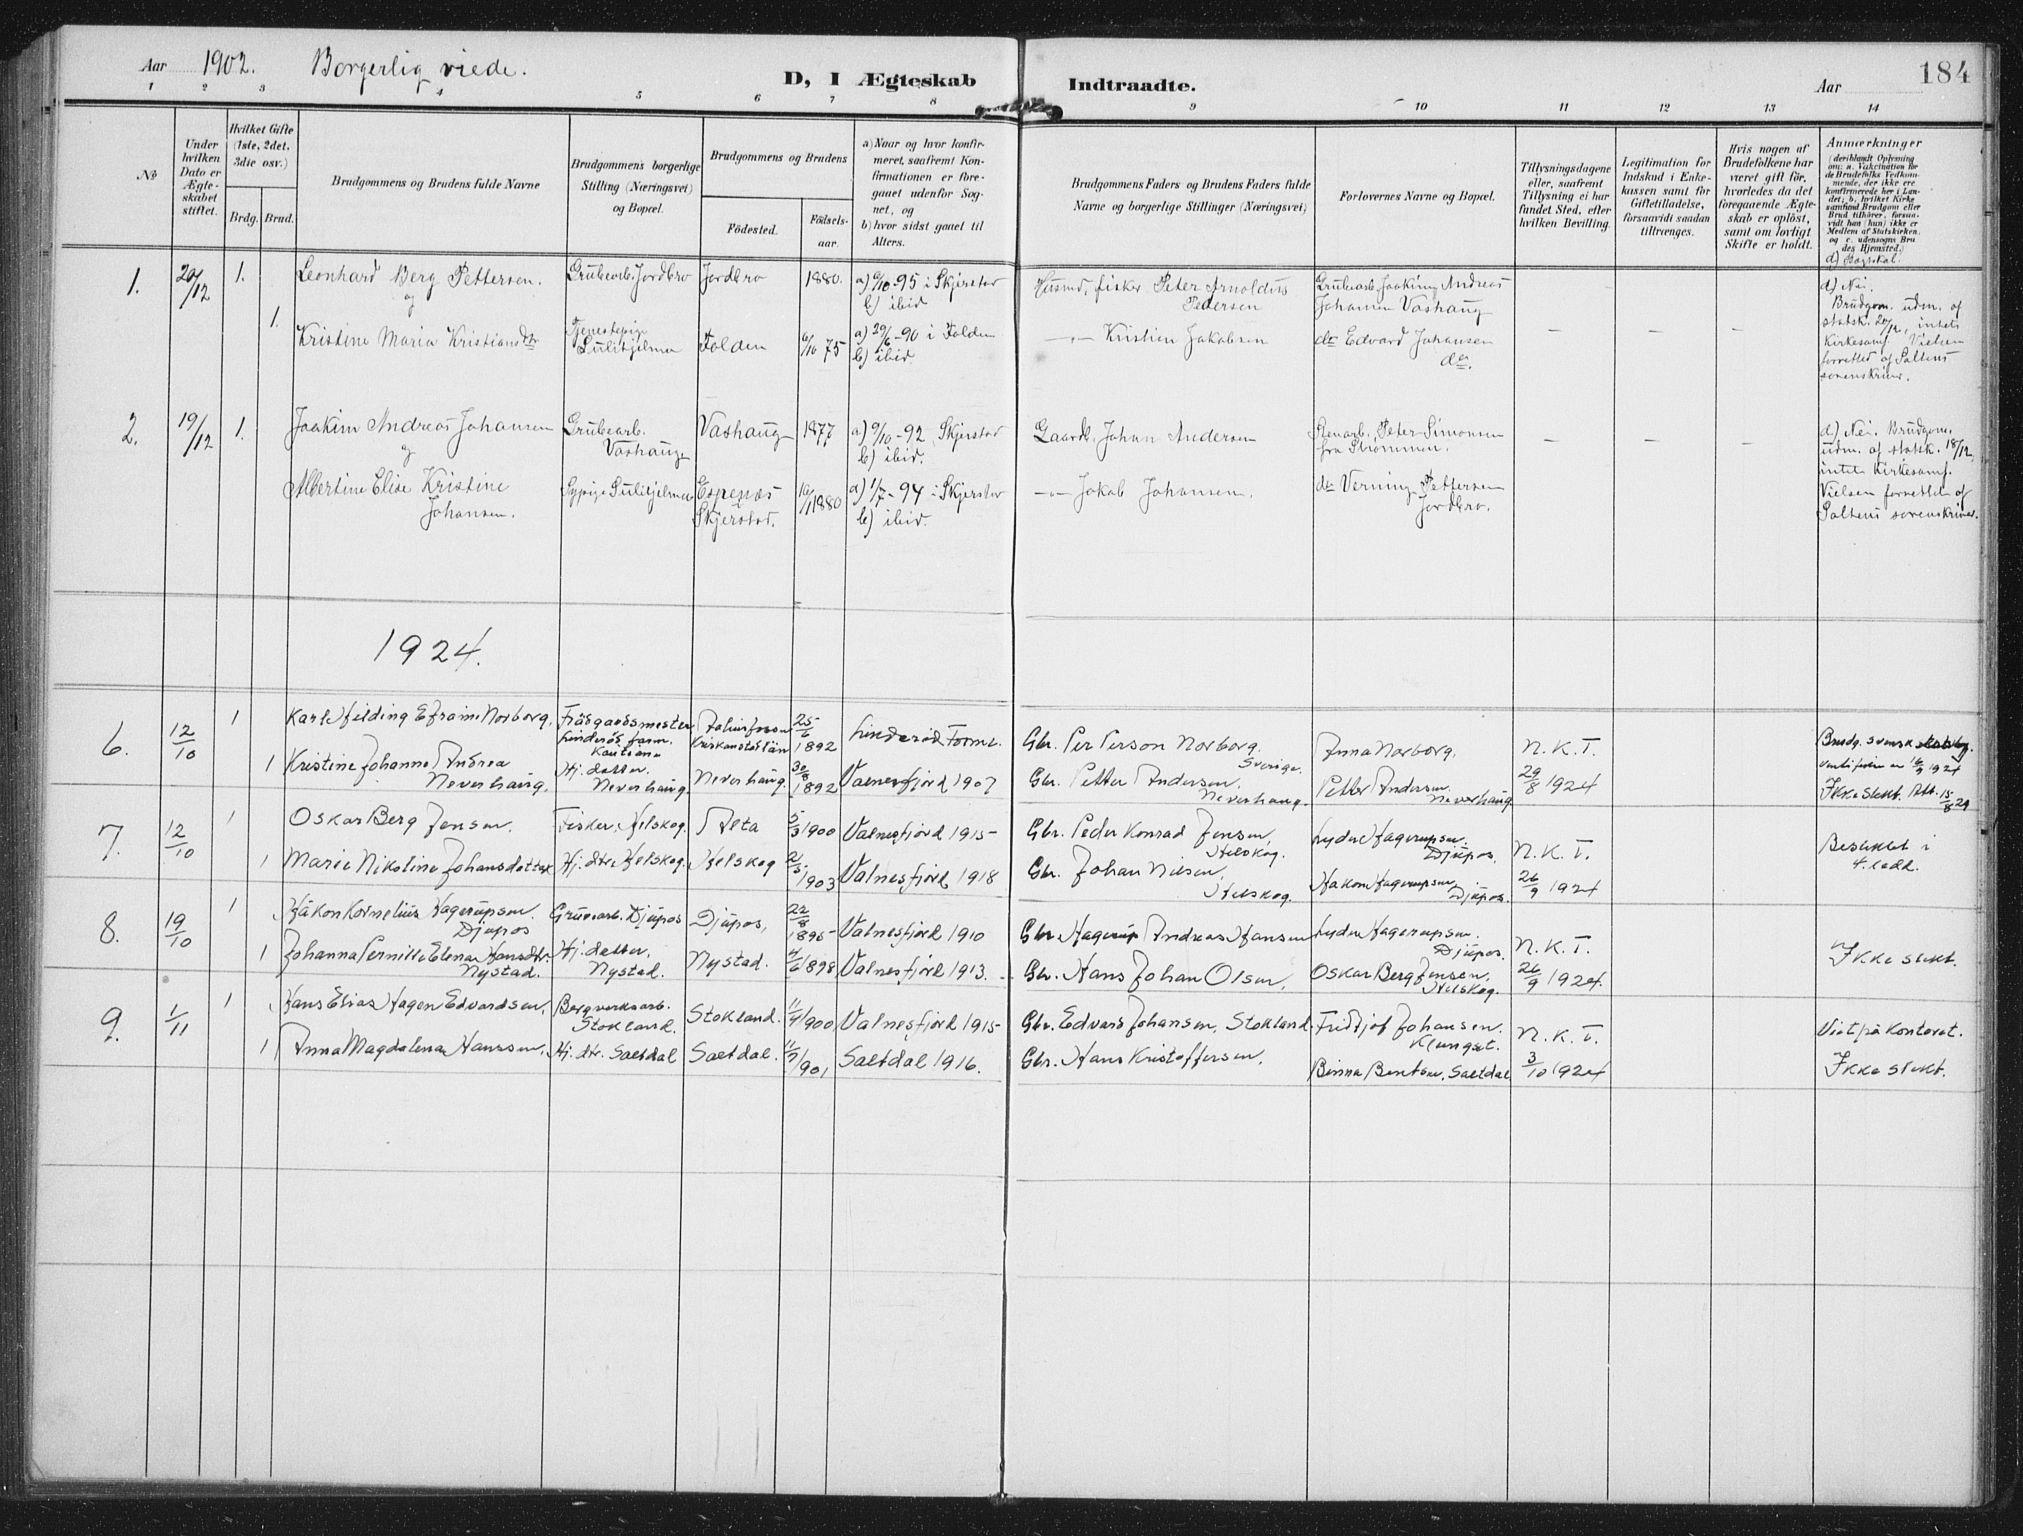 184
Aar 1902. Borgerlig viede.
D, I Ægteskab Indtraadte.
Aar
1 2 3 4 5 6 7 8 9 10 11 12 13 14
No
Under hvilken Dato er Ægteskabet stiftet.
Hvilket Gifte (1ste, 2det, 3die osv.)
Brdg. Brud.
Brudgommens og Brudens fulde Navne
Brudgommens borgerlige Stilling (Næringsvei) og Bopœl.
Brudgommens og Brudens
Födested.
Födselsaar.
a) Naar og hvor konfirmeret, saafremt Konfirmationen er foregaaet udenfor Sognet, og
b) hvor sidst gaaet til Alters.
Brudgommens Faders og Brudens Faders fulde Navne og borgerlige Stillinger (Næringsvei)
Forlovernes Navne og Bopœl.
Tillysningsdagene eller, saafremt Tillysning ei har fundet Sted, efter hvilken Bevilling.
Legitimation for Indskud i Enkekassen samt for Giftetilladelse, forsaavidt saadan tiltrænges.
Hvis nogen af Brudefolkene har været gift för, hvorledes da det foregaaende Ægteskab er oplöst, samt om lovligt Skifte er holdt.
Anmærkninger
(deriblandt Oplysning om: a. Vakcination for de Brudefolks Vedkommende, der ikke ere konfirmerede her i Landet; b. hvilket Kirkesamfund Brudgom eller Brud tilhörer, forsaavidt han (hun) ikke er Medlem af Statskirken, og c. udensogns Brudes Hjemsted.)
d) Bogskal.
1. 20/12 1. Leonhard Berg Pettersen. Grubearb. Jordbro Jordbro 1880. a) 6/10-95 i Skjerstad b) ibid
og
1. Kristine Maria Kristiansdtr Tjenestepige Sulitjelma Folden 6/10 75 a) 29/6-90 i Folden b) ibid.
Husmd, fisker Peter Arnoldus Pedersen
Grubearb. Joakim Andreas Johansen Vashaug
-"- Kristian Jakobsen
do Edvard Johansen do.
- - -
d) Nei.
Brudgom. udm. af
statsk. 20/12, intet
Kirkesamf. Vielsen
forrettet af Saltens
sorenskriver.
2. 19/12 1. Joakim Andreas Johansen Grubearb. Vashaug Vashaug 1877 a) 9/10-92 Skjerstad b) ibid.
og
Albertine Elise Kristine Johansen. Sypige Sulitjelma Espenæs Skjerstad. 16/1 1880 a) 1/7-94 i Skjerstad b) ibid.
Gaardb. Johan Andersen
Stenarb. Peter Simonsen fra Strømmen.
-"- Jakob Johansen.
do Verning Pettersen Jordbro.
- - -
d) Nei. Brudgom.
udm. af statsk. 18/12,
intet Kirkesamf.
Vielsen forrettet af
Saltens sorenskriver.
1924.
6. 12/10 1 Karl Hilding Efraim Norborg. Trädgaardsmester 25/6 1892 Linderöd Forml.
1 Kristine Johanne Andrea Neverhaug. Hj. datter. Neverhaug Neverhaug 30/8 1892 Valnesfjord 1907
Gbr. Per Person Norborg. Sverige. Anna Norborg. N. K. T.
Gbr. Petter Andersen, Neverhaug. Petter Andersen Neverhaug 29/8 1924
Brudg. svensk
Ikke slekt.
7. 12/10 1 Oskar Berg Jensen. Fisker, Helskog Alta 5/3 1900 Valnesfjord 1915
1 Marie Nikoline Johansdatter Hj. dtr. Helskog. Helskog 2/5 1903 Valnesfjord 1918
Gbr. Peder Konrad Jensen, Helskog. Lyder Hagerupsen. Djupos. N. K. T.
Gbr. Johan Nilsen, Helskog. Hakon Hagerupsen Djupos. 26/9 1924
Beslektet i
4. ledd.
8. 19/10 1 Håkon Kornelius Hagerupsen. Djupos Gruvearb. Djupos Djupos, 22/8 1895 Valnesfjord 1910
1 Johanna Pernille Elena Hansdtr. Nystad. Hj. datter, Nystad. Nystad. 4/6 1898 Valnesfjord 1913.
Gbr. Hagerup Andreas Hansen Lyder Hagerupsen. Djupos. N. K. T.
Gbr. Hans Johan Olsen, Oskar Berg Jensen, Helskog. 26/9 1924.
Ikke slekt.
9. 1/11 1 Hans Elias Hagen Edvardsen, Bergverksarb. Stokland. Stokland. 11/4 1900 Valnesfjord 1915
1 Anna Magdalena Hanssen. Hj. dtr. Saltdal Saltdal. 11/7 1901 Saltdal 1916.
Gbr. Edvard Johansen, Stokland Fridtjof Johansen. Klungset. N. K. T.
Gbr. Hans Kristoffersen. Binna Bentsen, Saltdal 3/10 1924
Viet på kontoret.
Ikke slekt.